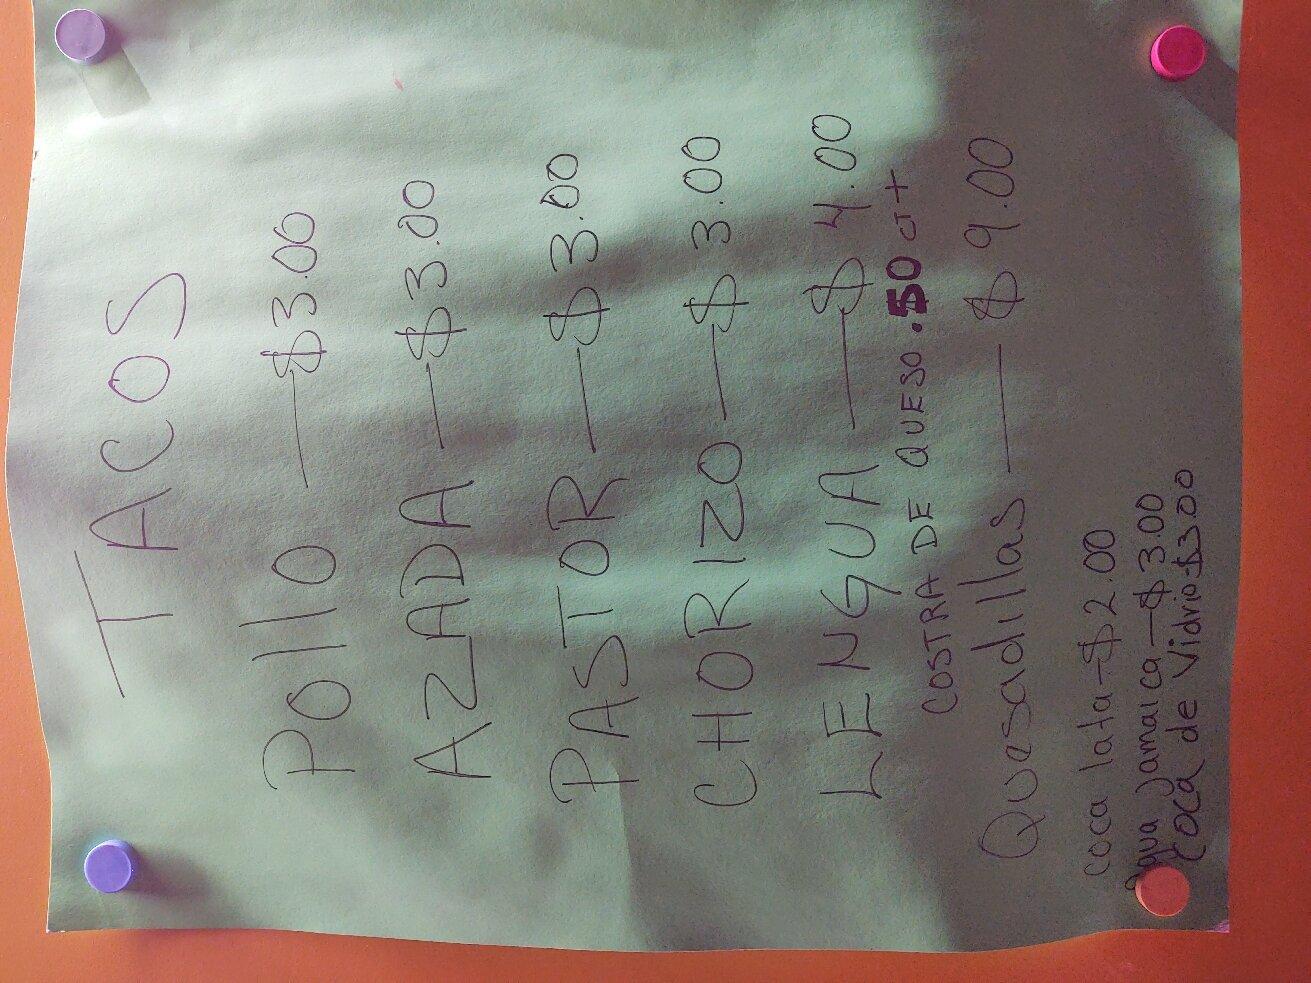 TACOS
Pollo — $3.00
AZADA — $3.00
PASTOR — $3.00
CHORIZO — $3.00
LENGUA — $4.00
COSTRA DE QUESO .50 ct +
Quesadillas — $9.00
coca lata - $2.00
agua Jamaica - $3.00
coca de Vidrio - $3.00